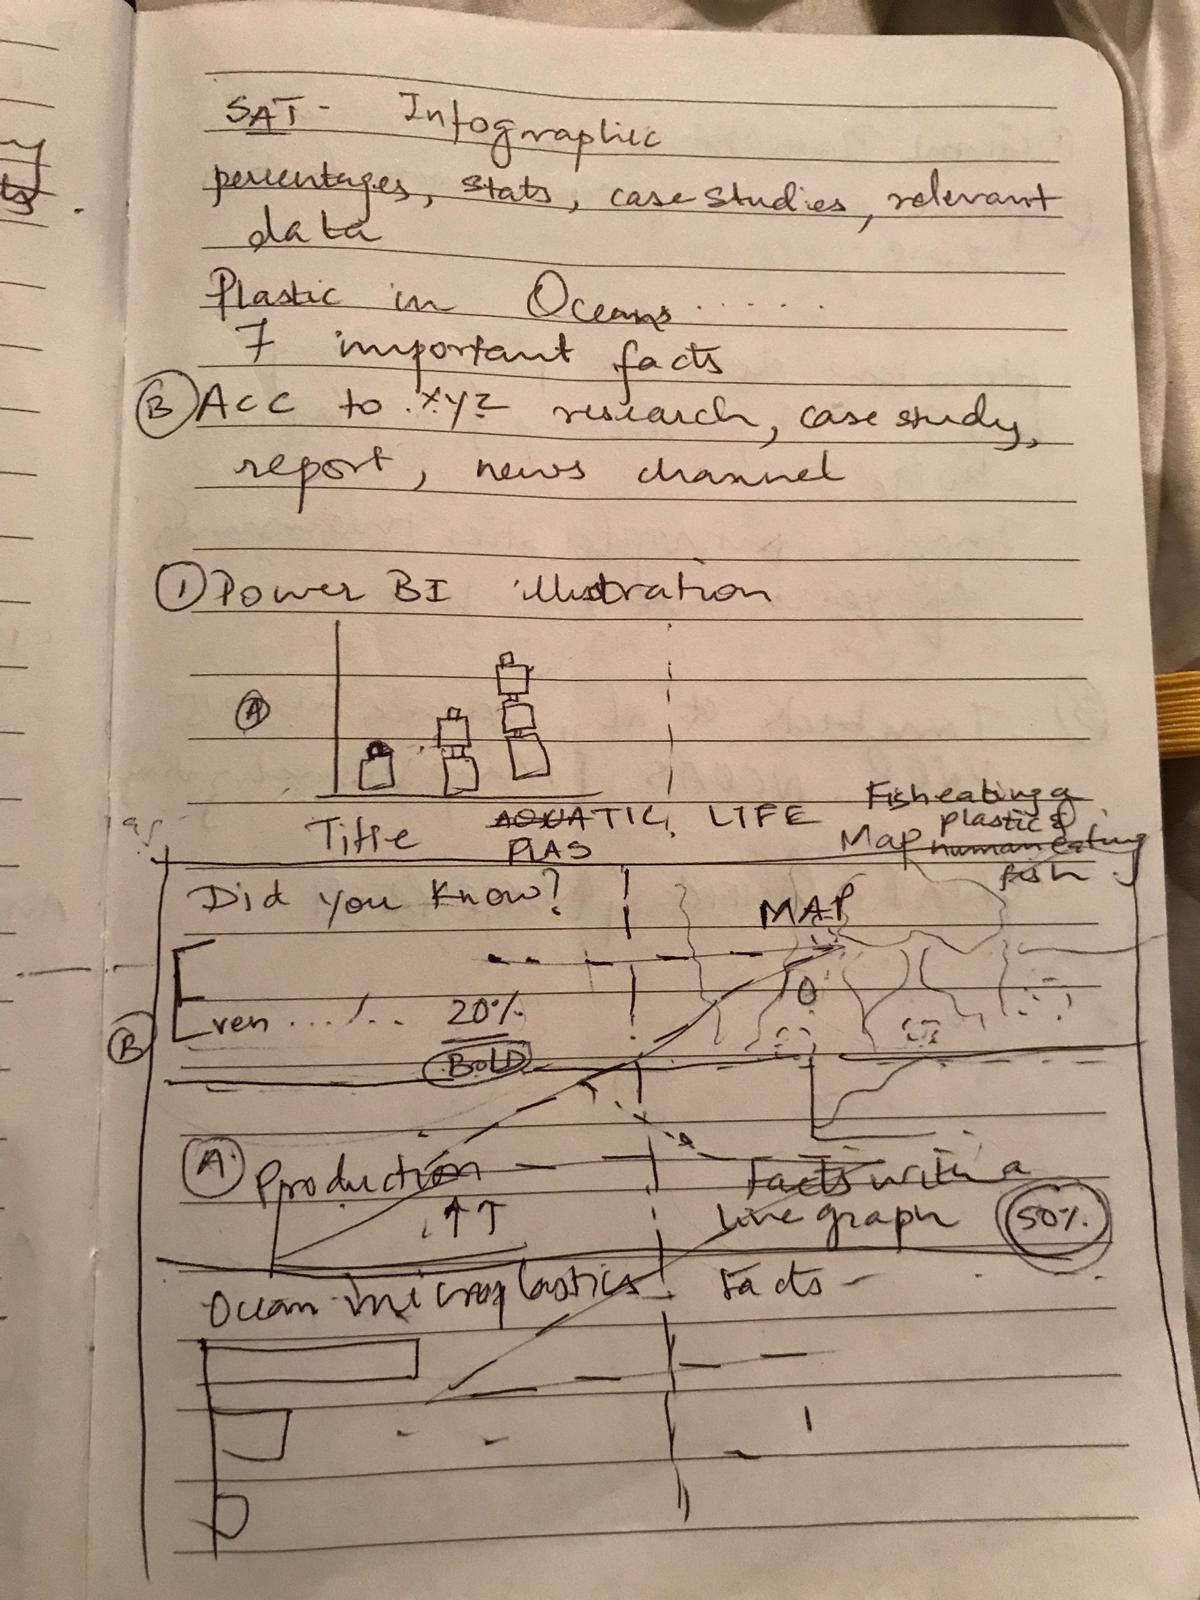 SAT - Infographic
percentages, stats, case studies, relevant
data
Plastic in Oceans......
7 important facts
B Acc to xyz research, case study,
report, news channel
1 Power BI illustration
A
Title AQUATIC LIFE
PLAS
Fish eating a
plastic &
Map human eating
fish
Did you know?
MAP
ven ... 20%
BOLD
B
A Production
↑↑
Facts with a
line graph 50%
Ocean microplastics Facts -